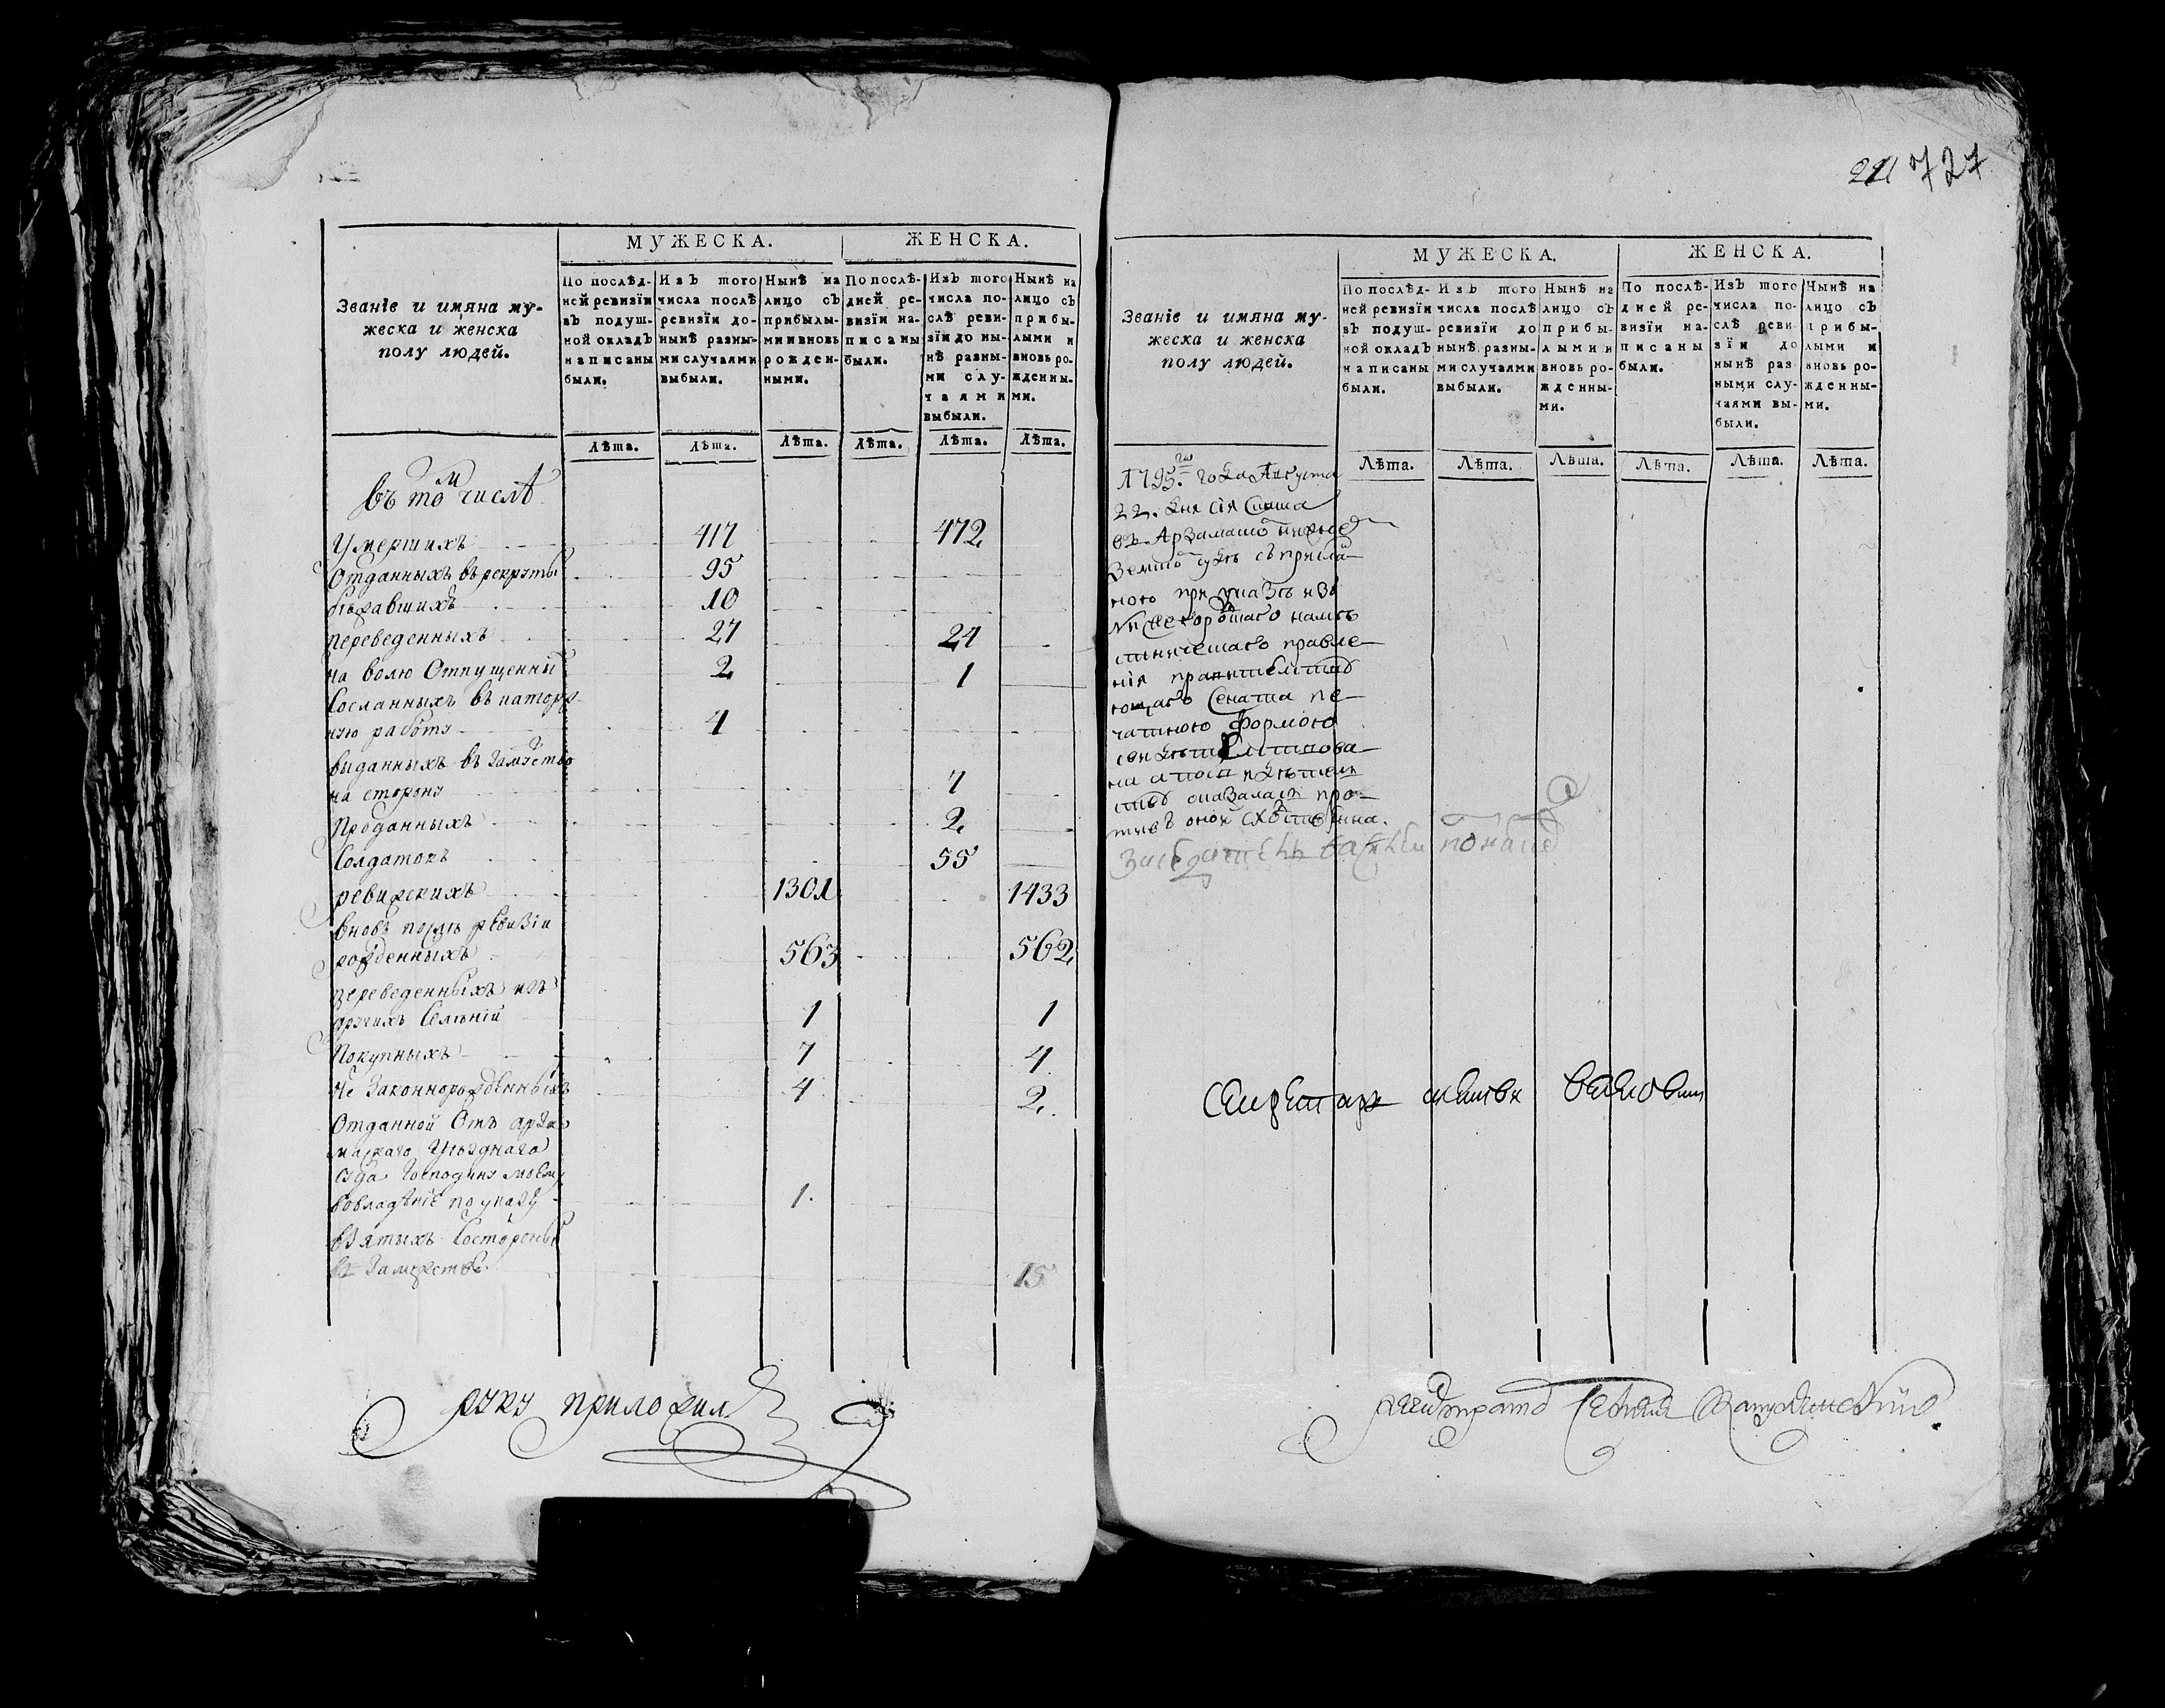 МУЖЕСКА.
ЖЕНСКА.
Званіе и имяна му-
жеска и женска
полу людей.
По послѣд-
ней ревизіи
въ подуш-
ной окладъ
написаны
были.
Изъ того
числа послѣ
ревизіи до-
нынѣ разны-
ми случаями
выбыли.
Нынѣ на
лицо съ
прибылы-
ми и вновь
рожден-
ными.
По послѣ-
дней ре-
визіи на-
писаны
были.
Изъ того
числа по-
слѣ реви-
зіи до ны-
нѣ разны-
ми слу-
чаями
выбыли.
Нынѣ на
лицо съ
прибы-
лыми и
вновь ро-
жденны-
ми.
Лѣта. Лѣта. Лѣта. Лѣта. Лѣта. Лѣта.
въ томъ числѣ
Умершихъ 417 472
Отданныхъ въ рекруты 95
бѣжавшихъ 10
переведенныхъ 27 24
на волю Отпущенны 2 1
Сосланныхъ въ каторж-
ную работу 4
выданныхъ въ замужство
на сторону 7
Проданныхъ 2
Солдатокъ 55
ревижскихъ 1301 1433
вновь послѣ ревизіи
рожденныхъ 563 562
переведенныхъ изъ
другихъ Селеній 1 1
Покупныхъ 7 4
Не Законнорожденныхъ 4 2
Отданной Отъ арза
маскаго Уѣзднаго
суда Господину моему
вовладѣніе по указу 1
взятыхъ Состороны
въ Замужство 15
руку приложил
727
МУЖЕСКА.
ЖЕНСКА.
Званіе и имяна му-
жеска и женска
полу людей.
По послѣд-
ней ревизіи
въ подуш-
ной окладъ
написаны
были.
Изъ того
числа послѣ
ревизіи до
нынѣ разны-
ми случаями
выбыли.
Нынѣ на
лицо съ
прибы-
лыми и
вновь ро-
жденны-
ми.
По послѣ-
дней ре-
визіи на-
писаны
были.
Изъ того
числа по-
слѣ реви-
зіи до
нынѣ раз-
ными слу-
чаями вы-
были.
Нынѣ на
лицо съ
прибы-
лыми и
вновь ро-
жденны-
ми.
Лѣта. Лѣта. Лѣта. Лѣта. Лѣта. Лѣта.
1795 го года Августа
22. дня сія
въ
Земскомъ судѣ съ прислан
ною при указѣ изъ
Нижегородскаго намѣс
тническаго правле
нія правительству
ющаго Сената пе
чатною формою
свидѣтельствова
на
ствѣ оказалась про
тивъ оной сходственна.
Секретарь